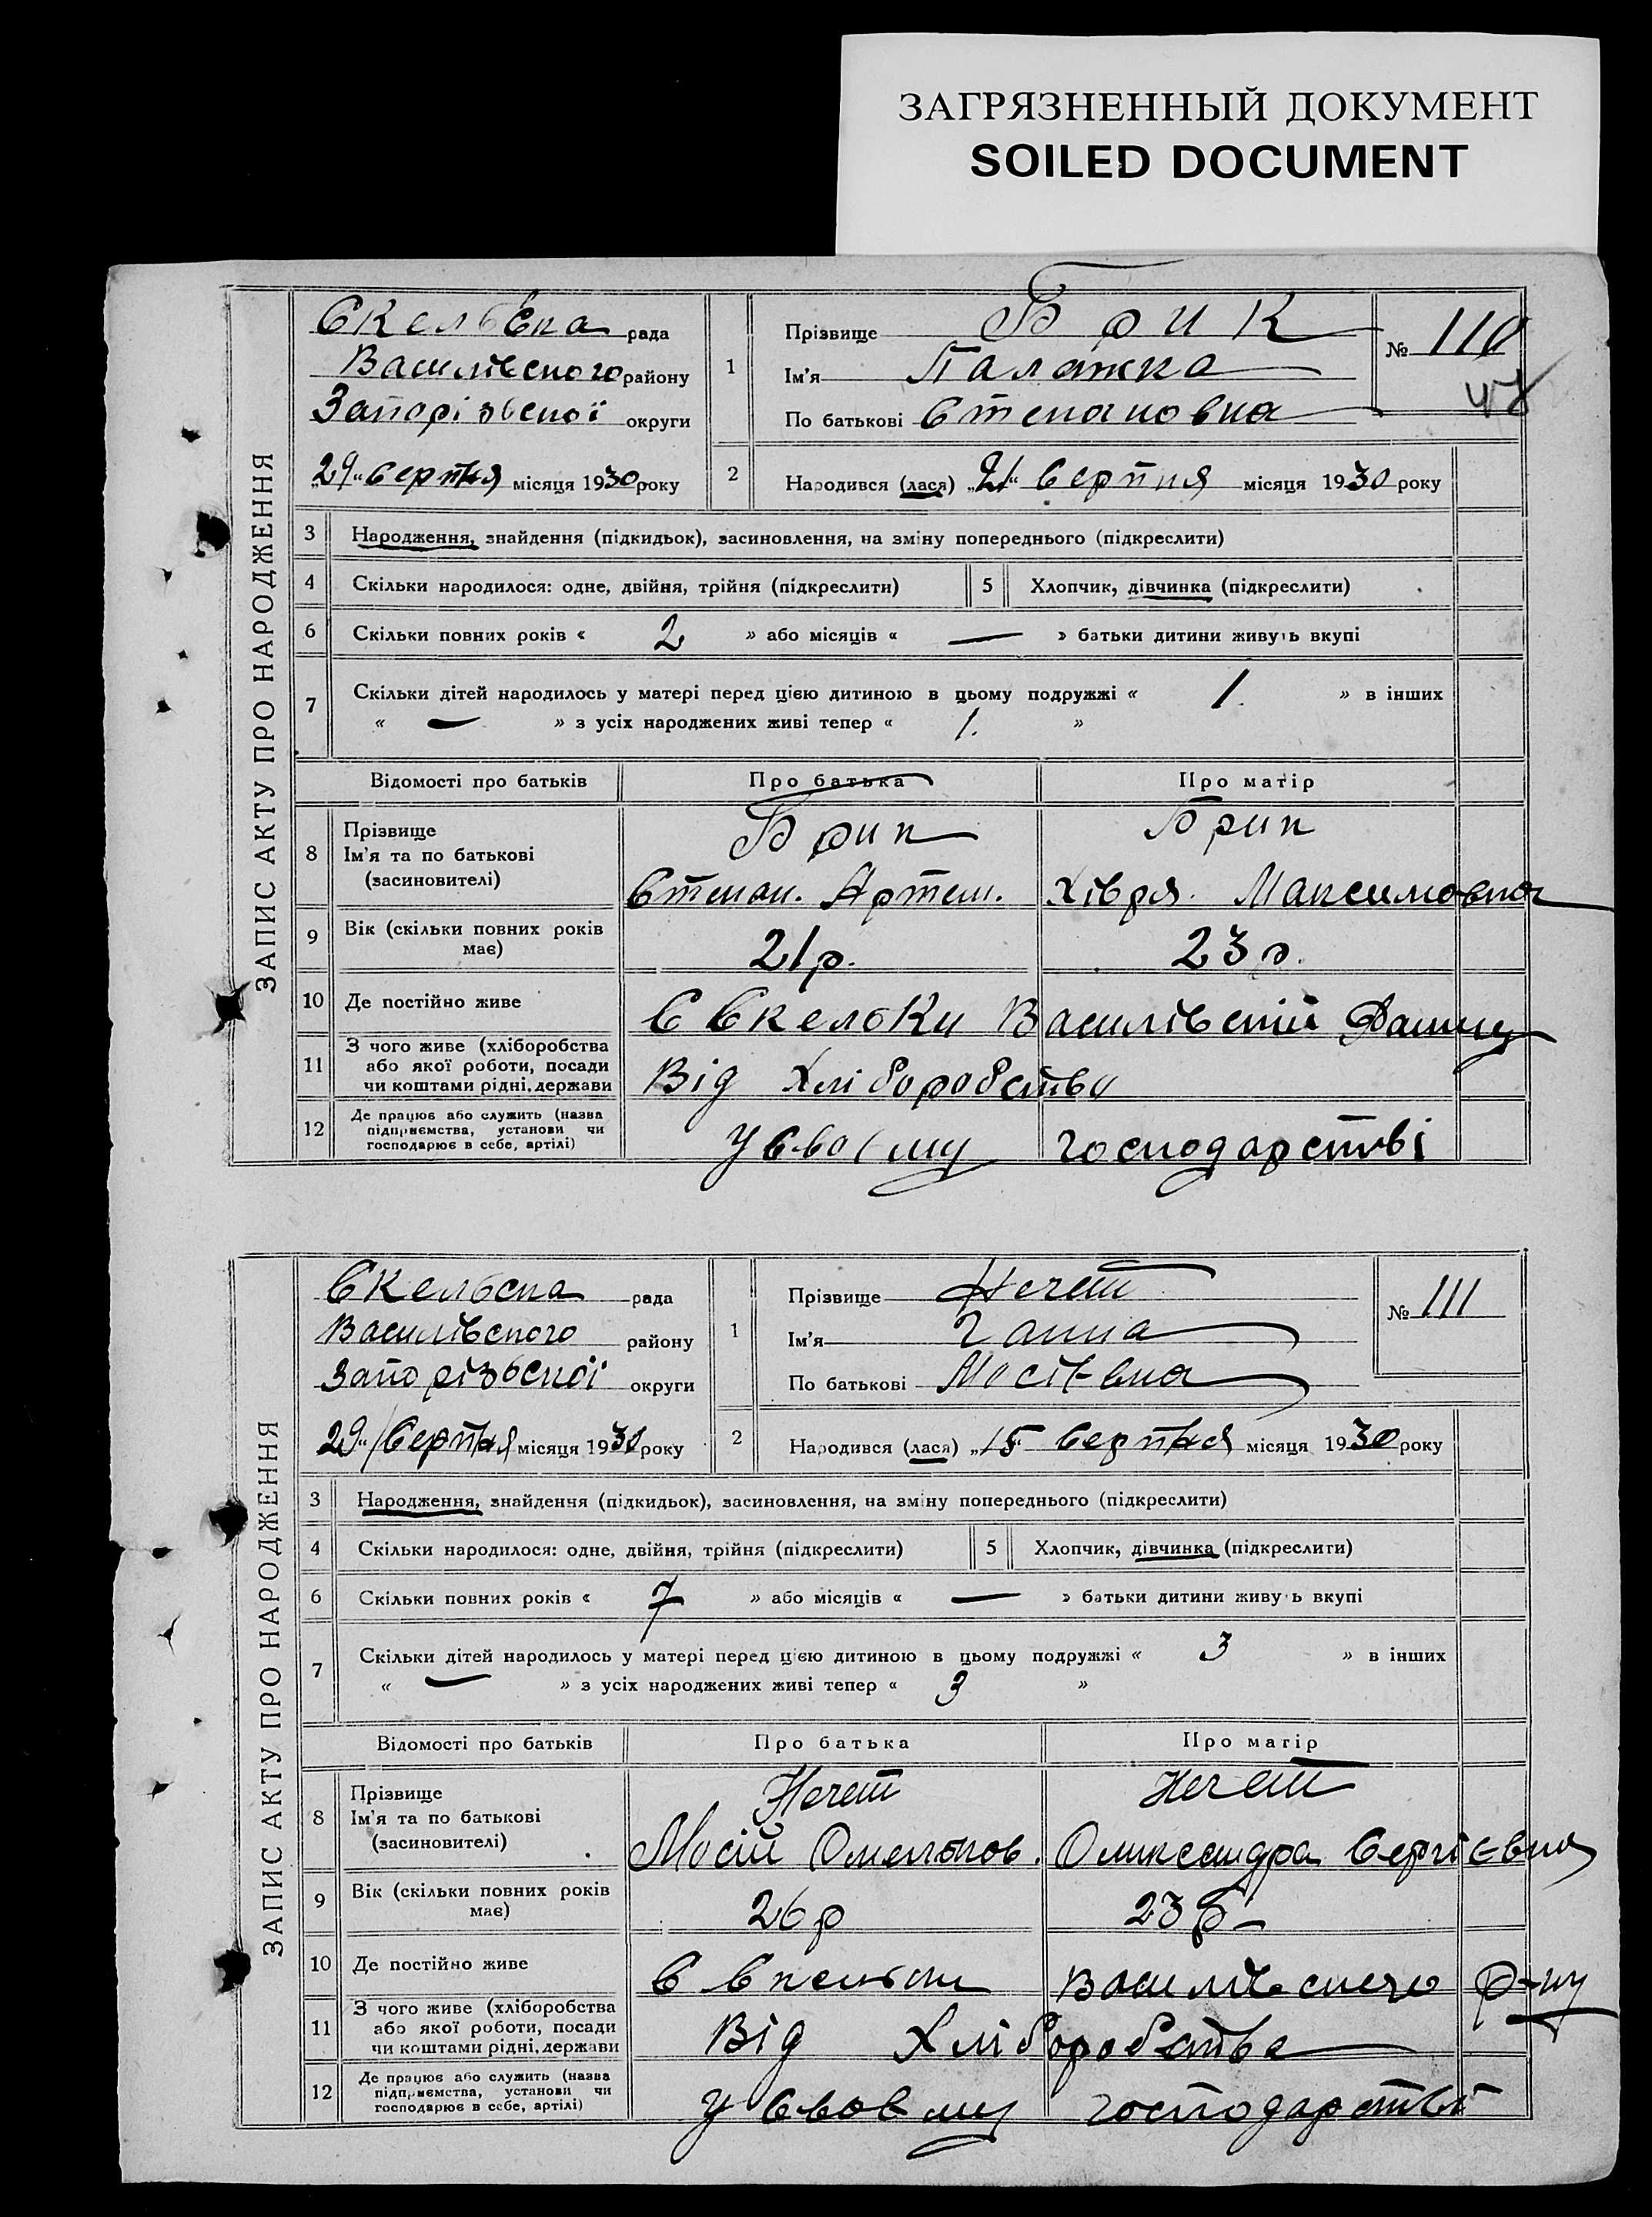 ЗАГРЯЗНЕННЫЙ ДОКУМЕНТ
SOILED DOCUMENT
ЗАПИС АКТУ ПРО НАРОДЖЕННЯ
Скельська рада
Василівського району
Запорізської округи
„29“ серпня місяця 1930 року
1
Прізвище Брик
Ім'я Палажка
По батькові Степановна
№ 110
47
2
Народився (лася) „21“ серпня місяця 1930 року
3 Народження, знайдення (підкидьок), засиновлення, на зміну попереднього (підкреслити)
4 Скільки народилося: одне, двійня, трійня (підкреслити) 5 Хлопчик, дівчинка (підкреслити)
6 Скільки повних років « 2 » або місяців « — » батьки дитини живуть вкупі
7 Скільки дітей народилось у матері перед цією дитиною в цьому подружжі « 1. » в інших
« — » з усіх народжених живі тепер « 1. »
Відомості про батьків Про батька Про матір
8 Прізвище
Ім'я та по батькові
(засиновителі)
Брик
Степан. Артем.
Брик
Хівря Максимовна
9 Вік (скільки повних років
має)
21 р.
23 р.
10 Де постійно живе С Скельки Василівській
11 З чого живе (хліборобства
або якої роботи, посади
чи коштами рідні, держави
Від Хліборобства
12 Де працює або служить (назва
підприємства, установи чи
господарює в себе, артілі)
У своєму господарстві
ЗАПИС АКТУ ПРО НАРОДЖЕННЯ
Скельська рада
Василівського району
Запорізської округи
„29“ серпня місяця 1930 року
1
Прізвище Нечет
Ім'я Ганна
По батькові Мосіївна
№ 111
2
Народився (лася) „15“ серпня місяця 1930 року
3 Народження, знайдення (підкидьок), засиновлення, на зміну попереднього (підкреслити)
4 Скільки народилося: одне, двійня, трійня (підкреслити) 5 Хлопчик, дівчинка (підкреслити)
6 Скільки повних років « 7 » або місяців « — » батьки дитини живуть вкупі
7 Скільки дітей народилось у матері перед цією дитиною в цьому подружжі « 3 » в інших
« — » з усіх народжених живі тепер « 3 »
Відомості про батьків Про батька Про матір
8 Прізвище
Ім'я та по батькові
(засиновителі)
Нечет
Мосій Омельков.
Нечет
Олександра Сергієвна
9 Вік (скільки повних років
має)
26 р
23 р
10 Де постійно живе С Скельки Василівського р-ну
11 З чого живе (хліборобства
або якої роботи, посади
чи коштами рідні, держави
Від Хліборобства
12 Де працює або служить (назва
підприємства, установи чи
господарює в себе, артілі)
У своєму господарстві